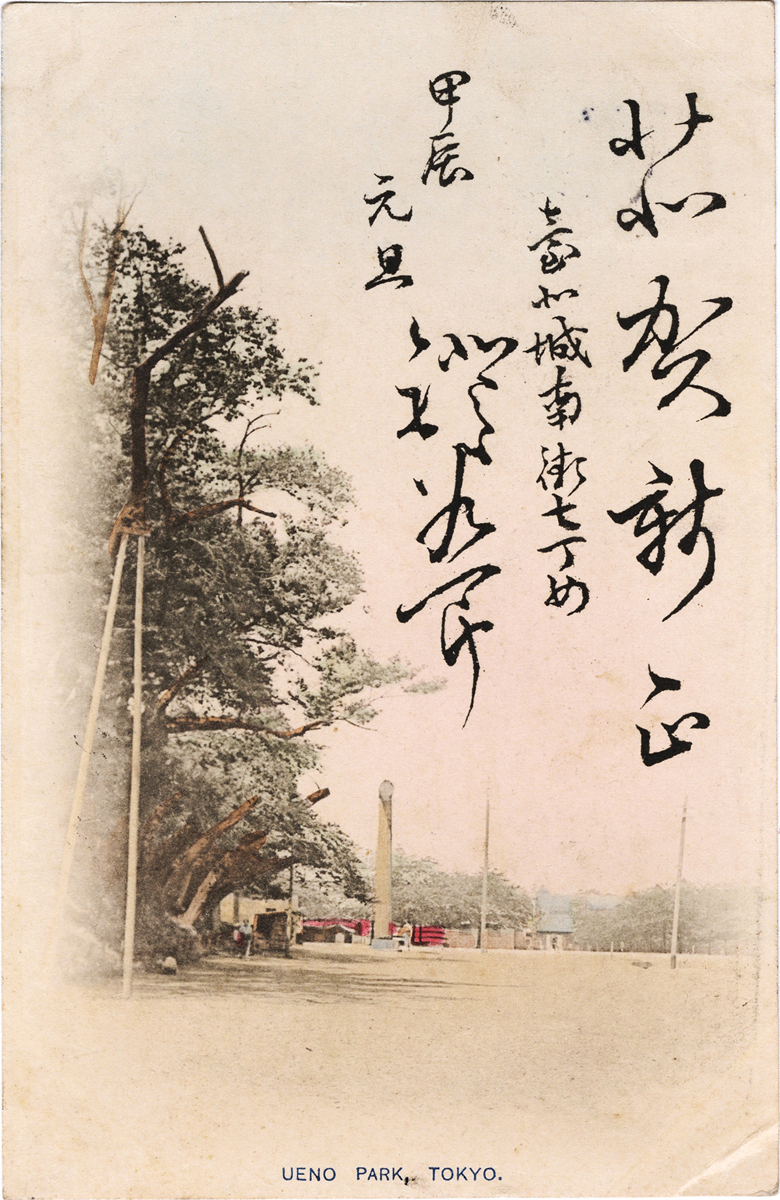 恭賀新正
臺北城南街七丁め
甲辰
元旦
UENO PARK, TOKYO.